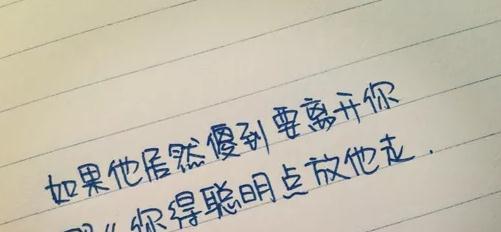 如果他居然傻到要离开你
你得聪明点放他走.